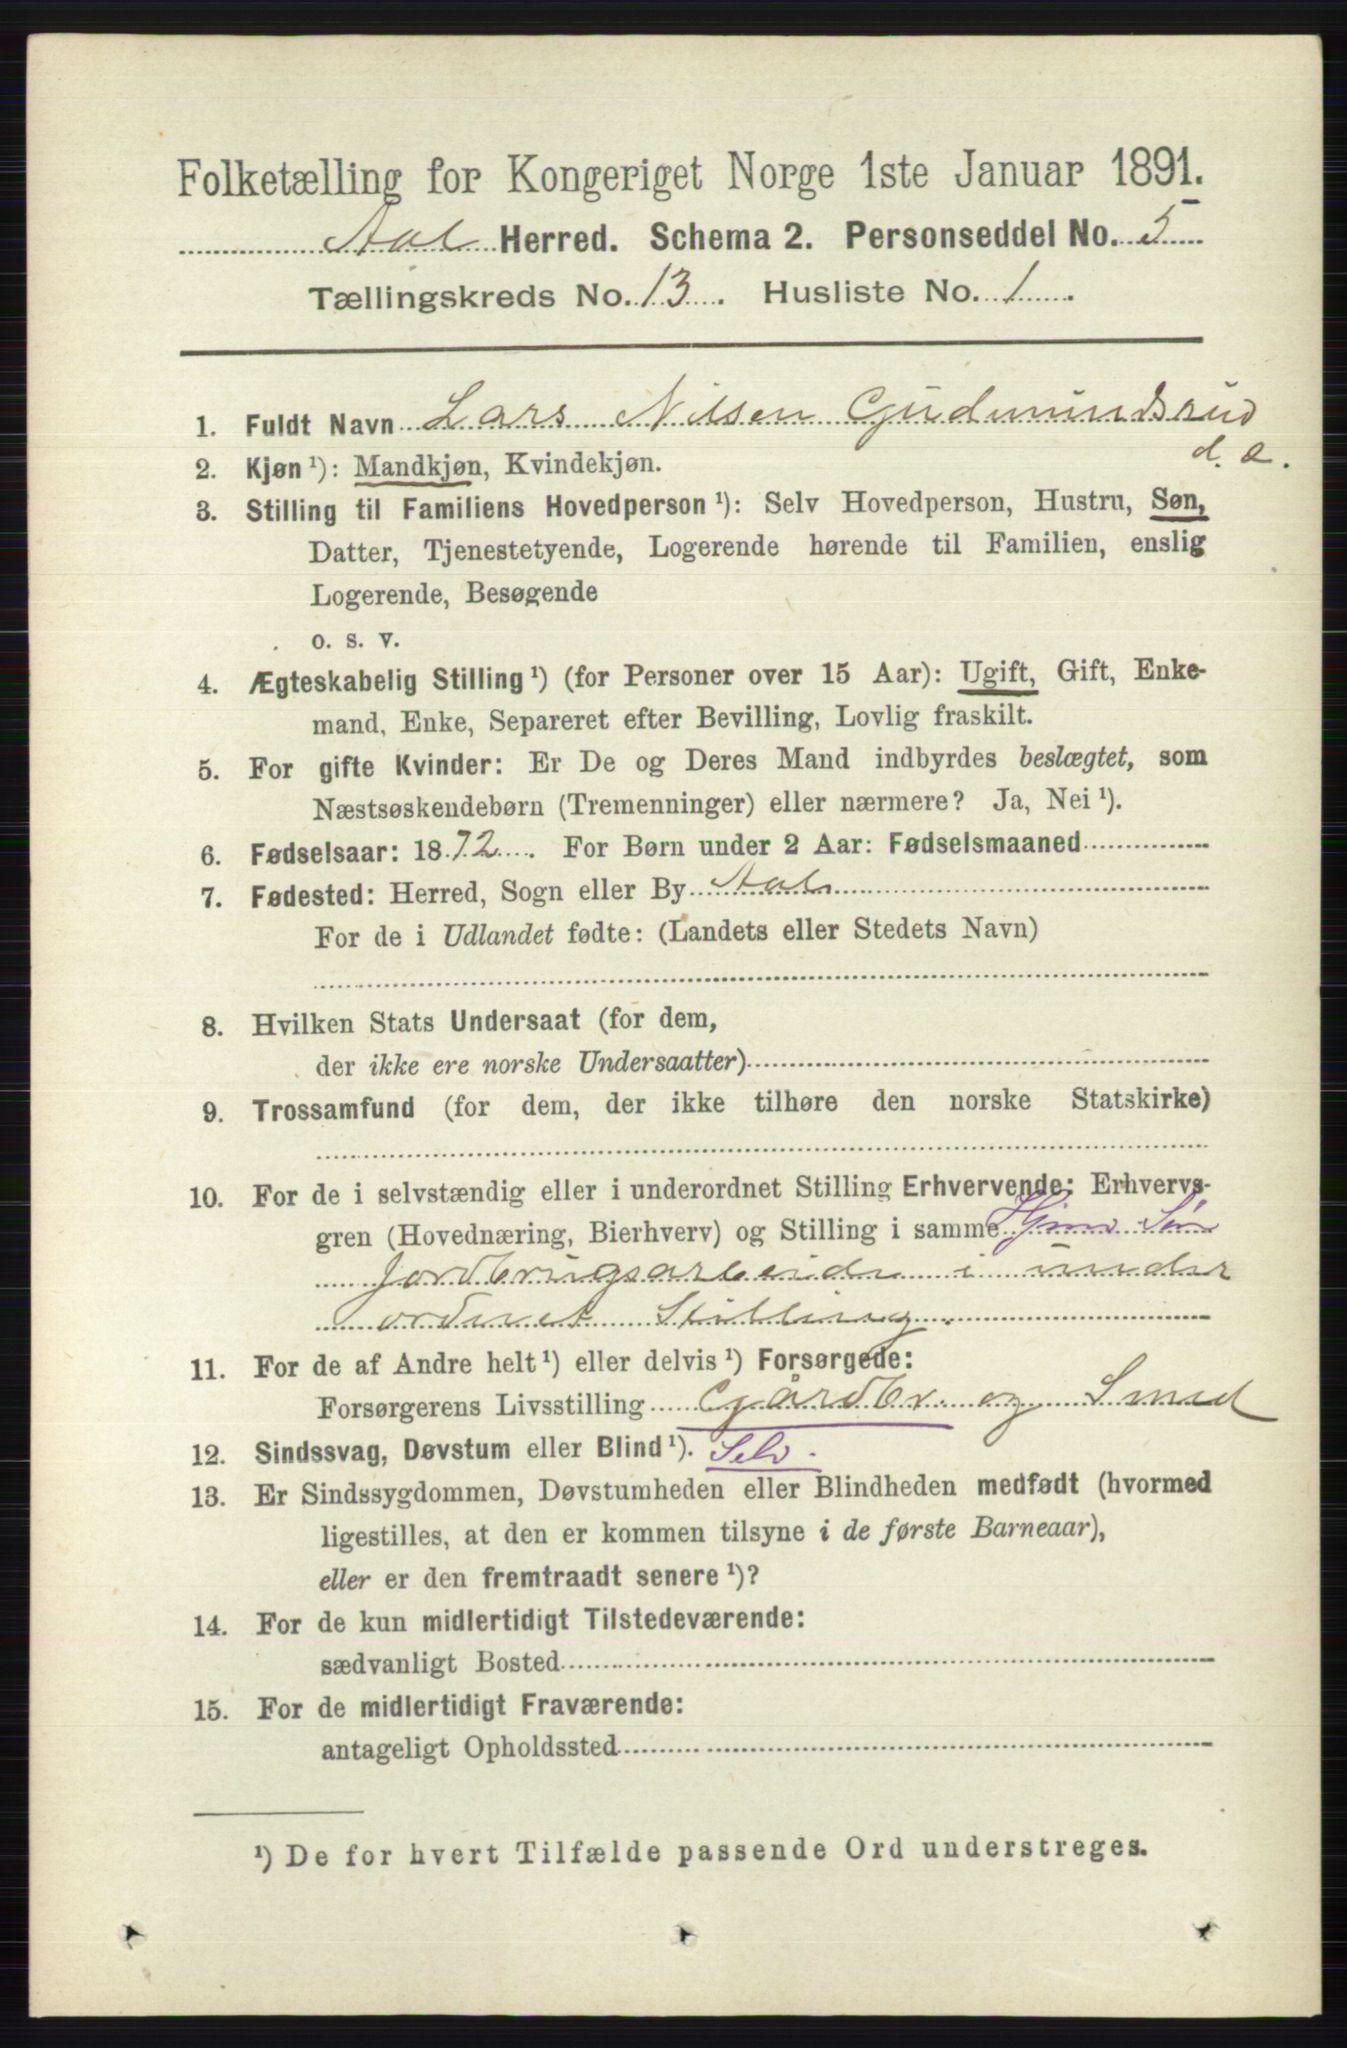 Folketælling for Kongeriget Norge 1ste Januar 1891.
Aal Herred. Schema 2. Personseddel No. 5
Tællingskreds No. 13. Husliste No. 1.
1. Fuldt Navn Lars Nilsen Gudmundsrud
d. æ.
2. Kjøn ¹): Mandkjøn, Kvindekjøn.
3. Stilling til Familiens Hovedperson ¹): Selv Hovedperson, Hustru, Søn,
Datter, Tjenestetyende, Logerende hørende til Familien, enslig
Logerende, Besøgende
o. s. v.
4. Ægteskabelig Stilling ¹) (for Personer over 15 Aar): Ugift, Gift, Enke-
mand, Enke, Separeret efter Bevilling, Lovlig fraskilt.
5. For gifte Kvinder: Er De og Deres Mand indbyrdes beslægtet, som
Næstsøskendebørn (Tremenninger) eller nærmere? Ja, Nei ¹).
6. Fødselsaar: 1872. For Børn under 2 Aar: Fødselsmaaned
7. Fødested: Herred, Sogn eller By Aal
For de i Udlandet fødte: (Landets eller Stedets Navn)
8. Hvilken Stats Undersaat (for dem,
der ikke ere norske Undersaatter)
9. Trossamfund (for dem, der ikke tilhøre den norske Statskirke)
10. For de i selvstændig eller i underordnet Stilling Erhvervende: Erhvervs-
gren (Hovednæring, Bierhverv) og Stilling i samme Hjmv Søn
Jordbrugsarbeide i under
ordnet Stilling.
11. For de af Andre helt ¹) eller delvis ¹) Forsørgede:
Forsørgerens Livsstilling Gårdbr. og Smed
12. Sindssvag, Døvstum eller Blind ¹). Selv.
13. Er Sindssygdommen, Døvstumheden eller Blindheden medfødt (hvormed
ligestilles, at den er kommen tilsyne i de første Barneaar),
eller er den fremtraadt senere ¹)?
14. For de kun midlertidigt Tilstedeværende:
sædvanligt Bosted
15. For de midlertidigt Fraværende:
antageligt Opholdssted
¹) De for hvert Tilfælde passende Ord understreges.